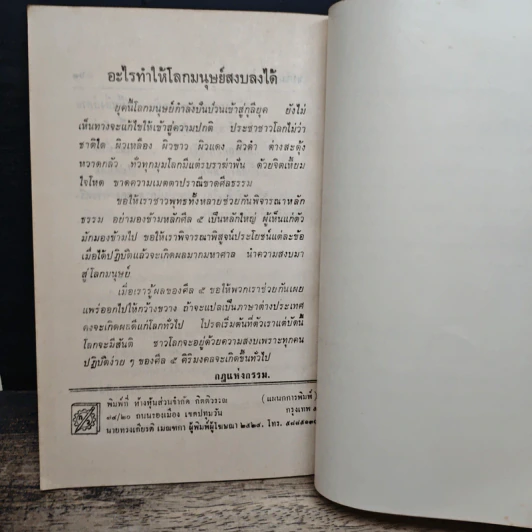 อะไรทำให้โลกมนุษย์สงบลงได้
ยุคนี้โลกมนุษย์กำลังปั่นป่วนเข้าสู่กลียุค ยังไม่
เห็นทางจะแก้ไขให้เข้าสู่ความปกติ ประชาชาวโลกไม่ว่า
ชาติใด ผิวเหลือง ผิวขาว ผิวแดง ผิวดำ ต่างสะดุ้ง
หวาดกลัว ทั่วทุกมุมโลกมีแต่รบราฆ่าฟัน ด้วยจิตเหี้ยม
ใจโหด ขาดความเมตตาปราณีขาดศีลธรรม
ขอให้เราชาวพุทธทั้งหลายช่วยกันพิจารณาหลัก
ธรรม อย่ามองข้ามหลักศีล ๕ เป็นหลักใหญ่ ผู้เห็นแก่ตัว
มักมองข้ามไป ขอให้เราพิจารณาพิสูจน์ประโยชน์แต่ละข้อ
เมื่อได้ปฏิบัติแล้วจะเกิดผลมากมหาศาล นำความสงบมา
สู่โลกมนุษย์
เมื่อเรารู้ผลของศีล ๕ ขอให้พวกเราช่วยกันเผย
แพร่ออกไปให้กว้างขวาง ถ้าจะแปลเป็นภาษาต่างประเทศ
คงจะเกิดผลดีแก่โลกทั่วไป โปรดเริ่มต้นที่ตัวเราแต่บัดนี้
โลกจะมีสันติ ชาวโลกจะอยู่ด้วยความสงบเพราะทุกคน
ปฏิบัติง่าย ๆ ของศีล ๕ ศิริมงคลจะเกิดขึ้นทั่วไป
กฎแห่งกรรม.
พิมพ์ที่ ห้างหุ้นส่วนจำกัด กิตติวรรณ (แผนกการพิมพ์)
๓๙/๒๐ ถนนรองเมือง เขตปทุมวัน กรุงเทพ
นายทรงเกียรติ เมณฑกา ผู้พิมพ์ผู้โฆษณา ๒๕๒๙. โทร.